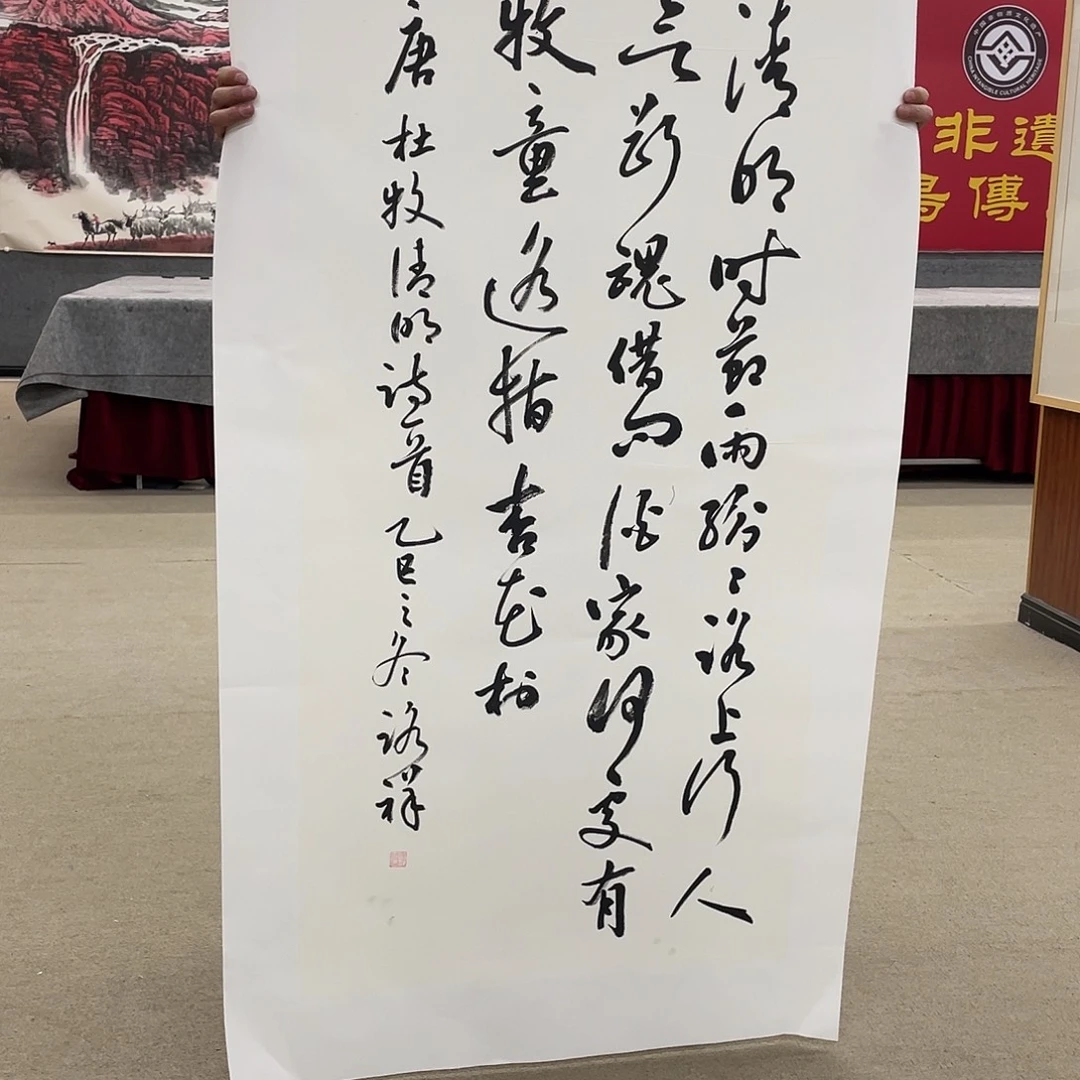 清明时节雨纷々路上行人
欲断魂借问酒家何处有
牧童遥指杏花村
唐杜牧清明诗一首 乙巳之冬 路祥
中国非物质文化遗产
CHINA INTANGIBLE CULTURAL HERITAGE
非遺
傳